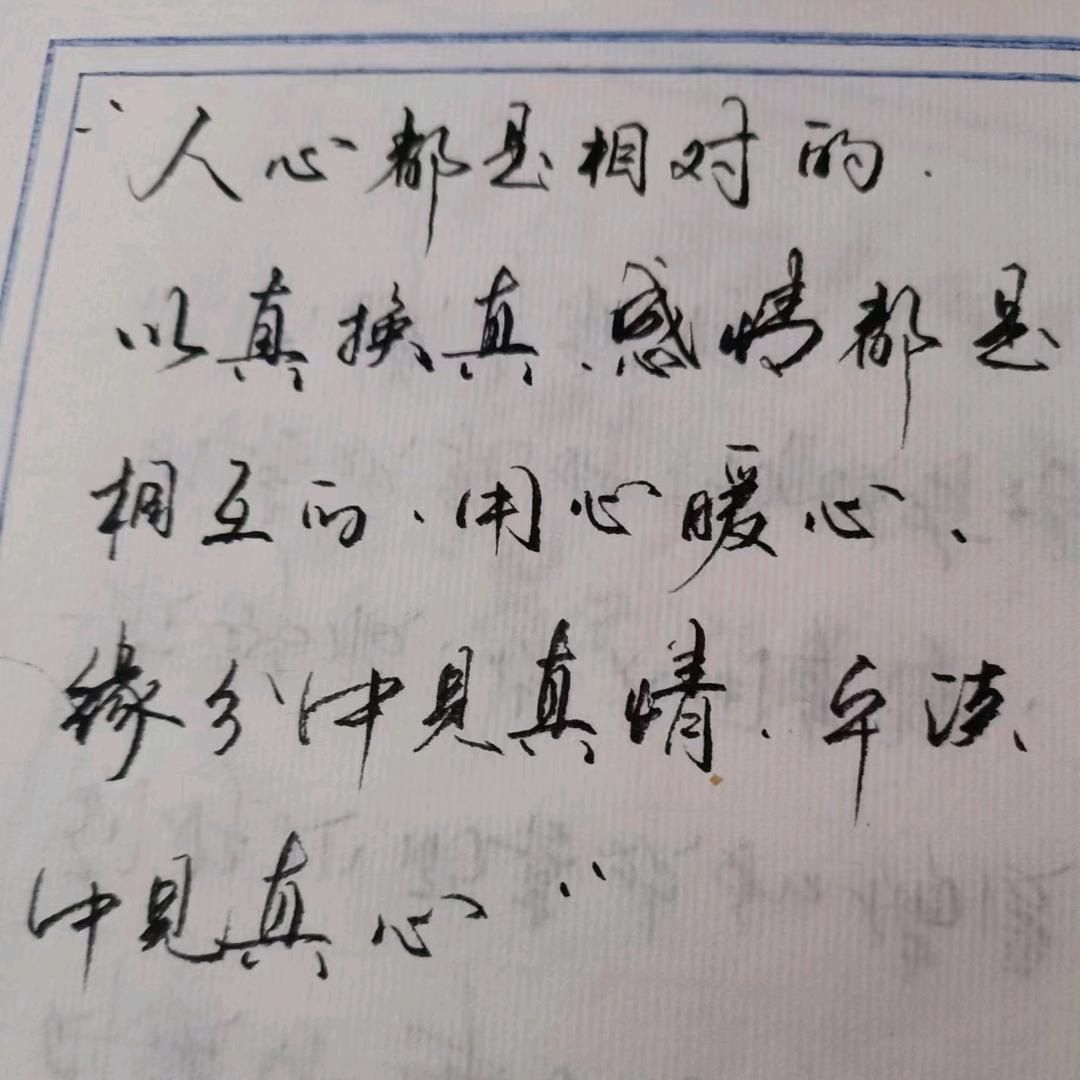 “人心都是相对的.
以真换真、感情都是
相互的、用心暖心、
缘分中见真情、平淡
中见真心”